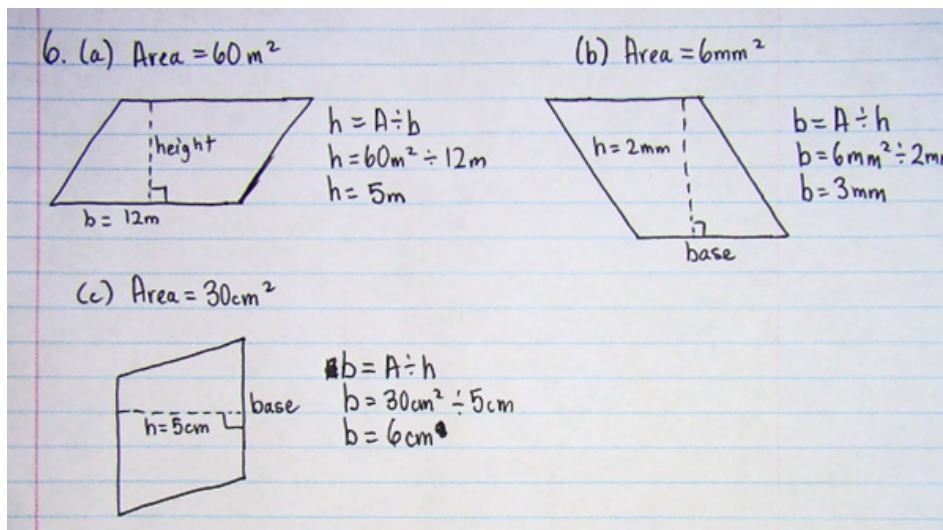 6. (a) Area = 60 m²
height
b = 12m
h = A ÷ b
h = 60m² ÷ 12m
h = 5m
(b) Area = 6mm²
h = 2mm
base
b = A ÷ h
b = 6mm² ÷ 2m
b = 3mm
(c) Area = 30cm²
base
h = 5cm
b = A ÷ h
b = 30cm² ÷ 5cm
b = 6cm